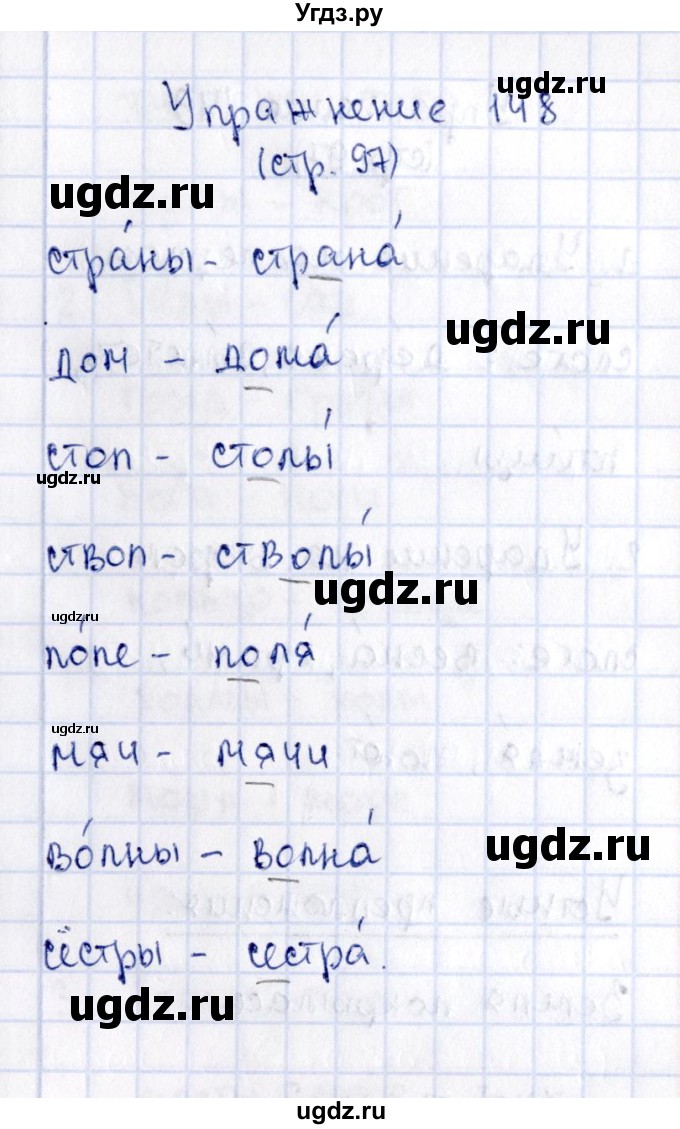 Угдз.ру
Упражнение 148
(стр. 97)
ugdz.ru
стра́ны - страна́
ugdz.ru
дом - дома́
стол - столы́
ugdz.ru
ствол - стволы́
ugdz.ru
ugdz.ru
по́ле - поля́
ugdz.ru
мяч - мячи
во́лны - волна́
ugdz.ru
сёстры - сестра́.
ugdz.ru
ugdz.ru
ugdz.ru